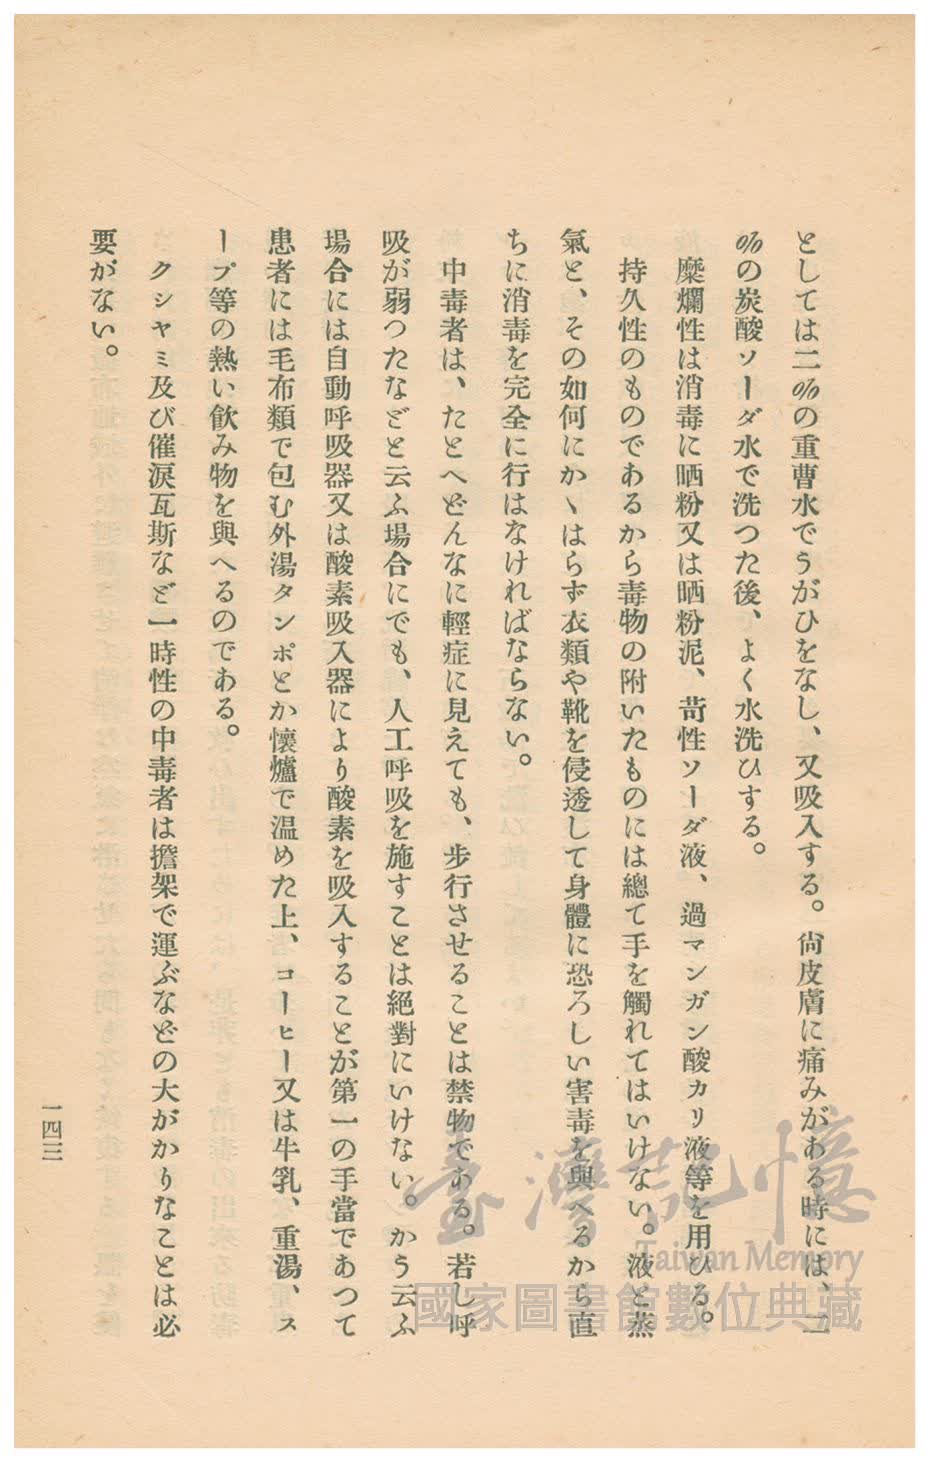 としては二%の重曹水でうがひをなし、又吸入する。尙皮膚に痛みがある時には、二
%の炭酸ソーダ水で洗つた後、よく水洗ひする。
糜爛性は消毒に晒粉又は晒粉泥、苛性ソーダ液、過マンガン酸カリ液等を用ひる。
持久性のものであるから毒物の附いたものには總て手を觸れてはいけない。液と蒸
氣と、その如何にかゝはらず衣類や靴を侵透して身體に恐ろしい害毒を與へるから直
ちに消毒を完全に行はなければならない。
中毒者は、たとへどんなに輕症に見えても、步行させることは禁物である。若し呼
吸が弱つたなどと云ふ場合にでも、人工呼吸を施すことは絕對にいけない。かう云ふ
場合には自動呼吸器又は酸素吸入器により酸素を吸入することが第一の手當であつて
患者には毛布類で包む外湯タンポとか懷爐で温めた上、コーヒー又は牛乳、重湯、ス
ープ等の熱い飮み物を與へるのである。
クシヤミ及び催淚瓦斯など一時性の中毒者は擔架で運ぶなどの大がかりなことは必
要がない。
一四三
臺灣記憶
Taiwan Memory
國家圖書館數位典藏